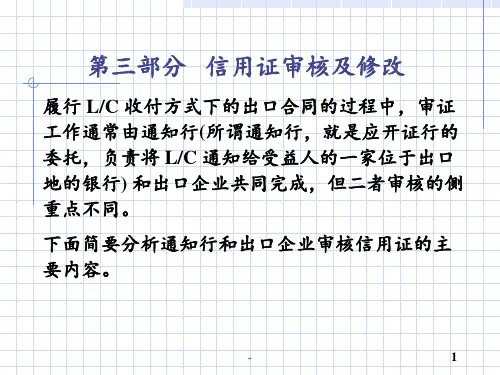 第三部分 信用证审核及修改
履行 L/C 收付方式下的出口合同的过程中，审证
工作通常由通知行(所谓通知行，就是应开证行的
委托，负责将 L/C 通知给受益人的一家位于出口
地的银行) 和出口企业共同完成，但二者审核的侧
重点不同。
下面简要分析通知行和出口企业审核信用证的主
要内容。
- 1